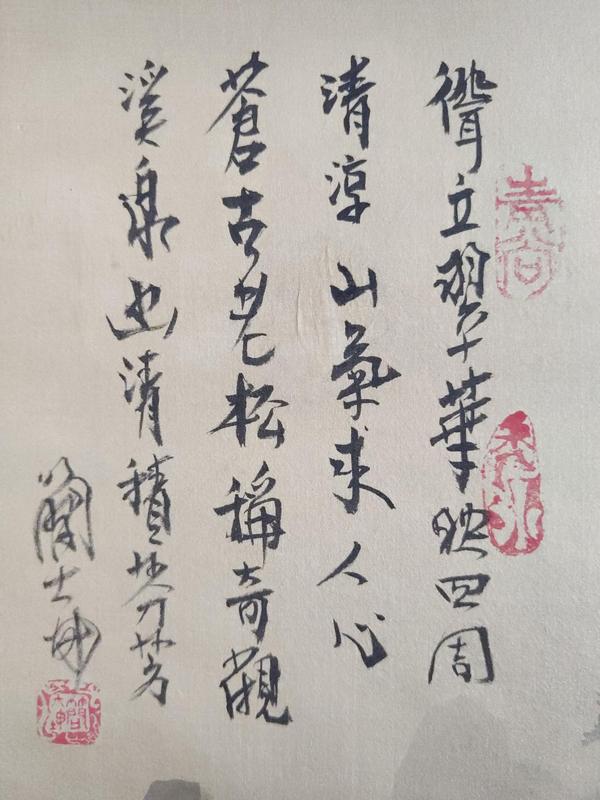 聳立翠華映四周
清淳山氣求人心
蒼古老松稱奇觀
溪泉也清積芬芳
簡士